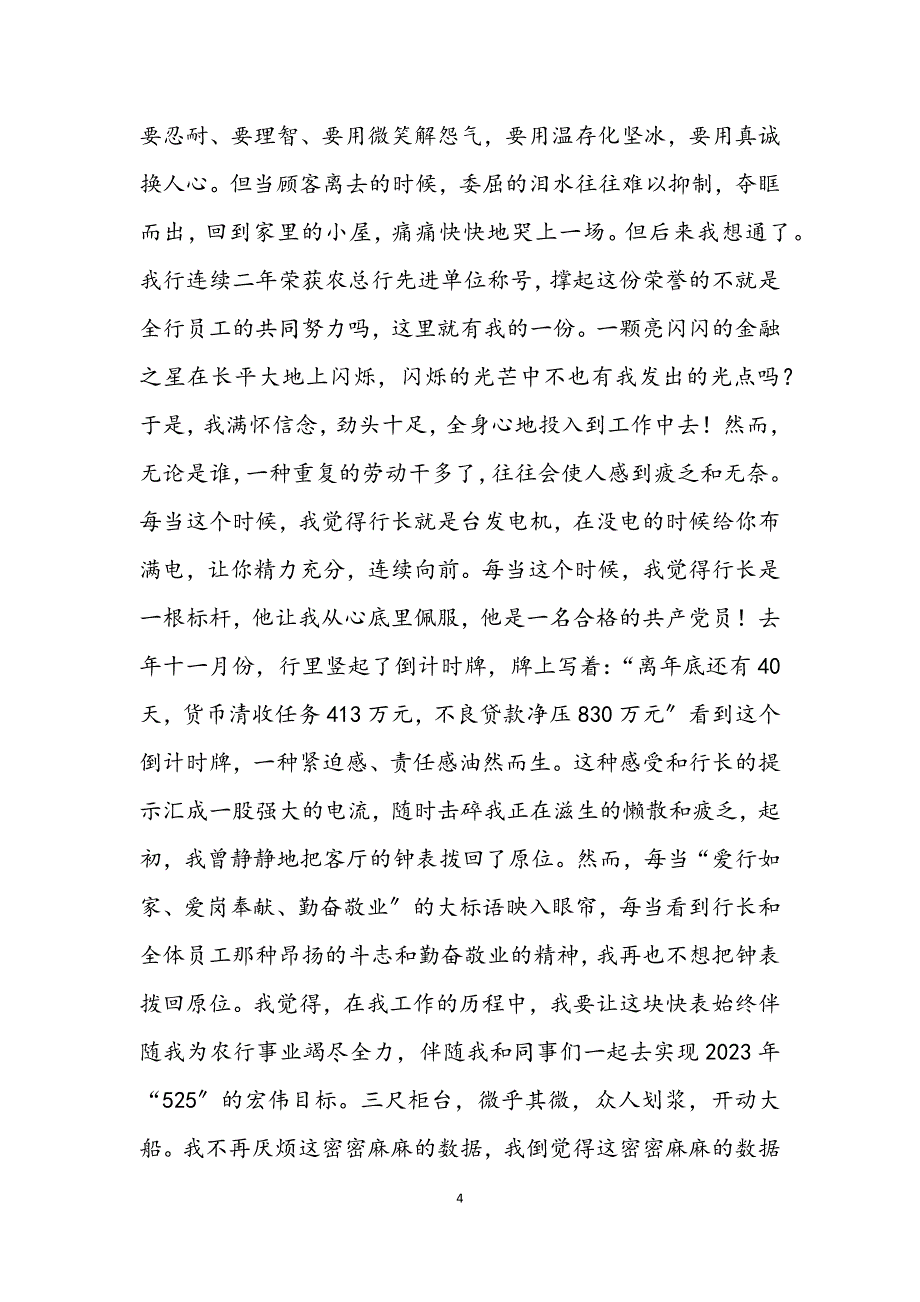 要忍耐、要理智、要用微笑解怨气，要用温存化坚冰，要用真诚
换人心。但当顾客离去的时候，委屈的泪水往往难以抑制，夺眶
而出，回到家里的小屋，痛痛快快地哭上一场。但后来我想通了。
我行连续二年荣获农总行先进单位称号，撑起这份荣誉的不就是
全行员工的共同努力吗，这里就有我的一份。一颗亮闪闪的金融
之星在长平大地上闪烁，闪烁的光芒中不也有我发出的光点吗？
于是，我满怀信念，劲头十足，全身心地投入到工作中去！然而，
无论是谁，一种重复的劳动干多了，往往会使人感到疲乏和无奈。
每当这个时候，我觉得行长就是台发电机，在没电的时候给你布
满电，让你精力充分，连续向前。每当这个时候，我觉得行长是
一根标杆，他让我从心底里佩服，他是一名合格的共产党员！去
年十一月份，行里竖起了倒计时牌，牌上写着：“离年底还有 40
天，货币清收任务 413 万元，不良贷款净压 830 万元〞看到这个
倒计时牌，一种紧迫感、责任感油然而生。这种感受和行长的提
示汇成一股强大的电流，随时击碎我正在滋生的懒散和疲乏，起
初，我曾静静地把客厅的钟表拨回了原位。然而，每当“爱行如
家、爱岗奉献、勤奋敬业〞的大标语映入眼帘，每当看到行长和
全体员工那种昂扬的斗志和勤奋敬业的精神，我再也不想把钟表
拨回原位。我觉得，在我工作的历程中，我要让这块快表始终伴
随我为农行事业竭尽全力，伴随我和同事们一起去实现 2023 年
“525〞的宏伟目标。三尺柜台，微乎其微，众人划浆，开动大
船。我不再厌烦这密密麻麻的数据，我倒觉得这密密麻麻的数据
4